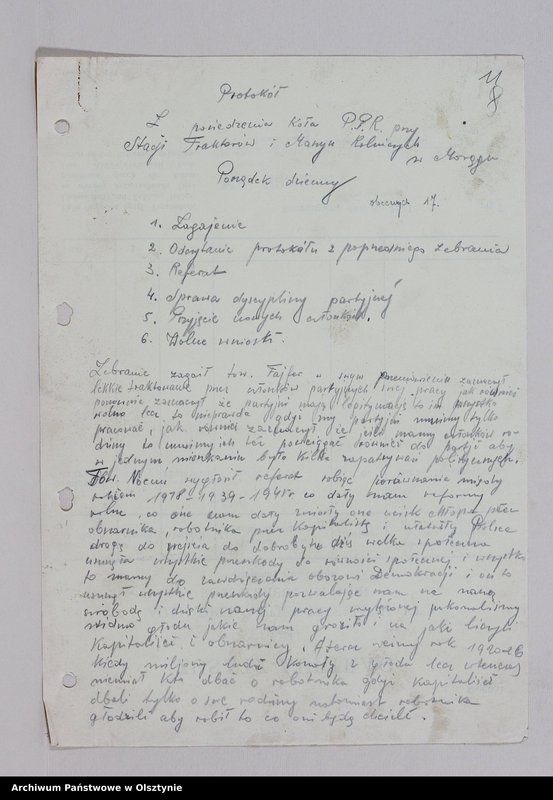 11
8
Protokół
Z posiedzenia Koła P.P.R. przy
Stacji Traktorów i Maszyn Rolniczych
w Morągu
Porządek dzienny
obecnych 17.
1. Zagajenie
2. Odczytanie protokółu z poprzedniego zebrania
3. Referat
4. Sprawa dyscypliny partyjnej
5. Przyjęcie nowych członków.
6. Wolne wnioski.
Zebranie zagaił tow. Fajfer w swym przemówieniu zaznaczył
lekkie traktowanie przez członków partyjnych swej pracy jak również
ponownie zaznaczył że partyjni mają legitymację to im wszystko
wolno lecz to nieprawda gdyż my partyjni musimy tylko
pracować, jak również zaznaczył że kto mamy członków ro-
dziny to musimy ich też pociągać również do partji aby
w jednym mieszkaniu było kilka zapatrywań politycznych.
Tow. wygłosił referat robiąc porównania między
rokiem 1918-1939-1945r co dały nam reformy
rolne, co one nam dały zniosły one ucisk chłopa przez
obszarnika, robotnika przez kapitalistę i utorowały Polsce
drogę do przejścia do dobrobytu dziś walka społeczna
usunęła wszystkie przeszkody do równości społecznej i wszystko
to mamy do zawdzięczenia obozowi Demokracji i on to
usunął wszystkie przeszkody pozwalając nam na naszą
swobodę i dzięki naszej pracy wytężonej pokonaliśmy
widmo głodu jakie nam groziło i na jaki liczyli
kapitaliści i obszarnicy. A teraz weźmy rok 1920-26
kiedy miljony ludzi konały z głodu lecz wtenczas
niemiał kto dbać o robotnika gdyż kapitaliści
dbali tylko o swe rodziny natomiast robotnika
głodzili aby robił to co oni będą chcieli.
Archiwum Państwowe w Olsztynie